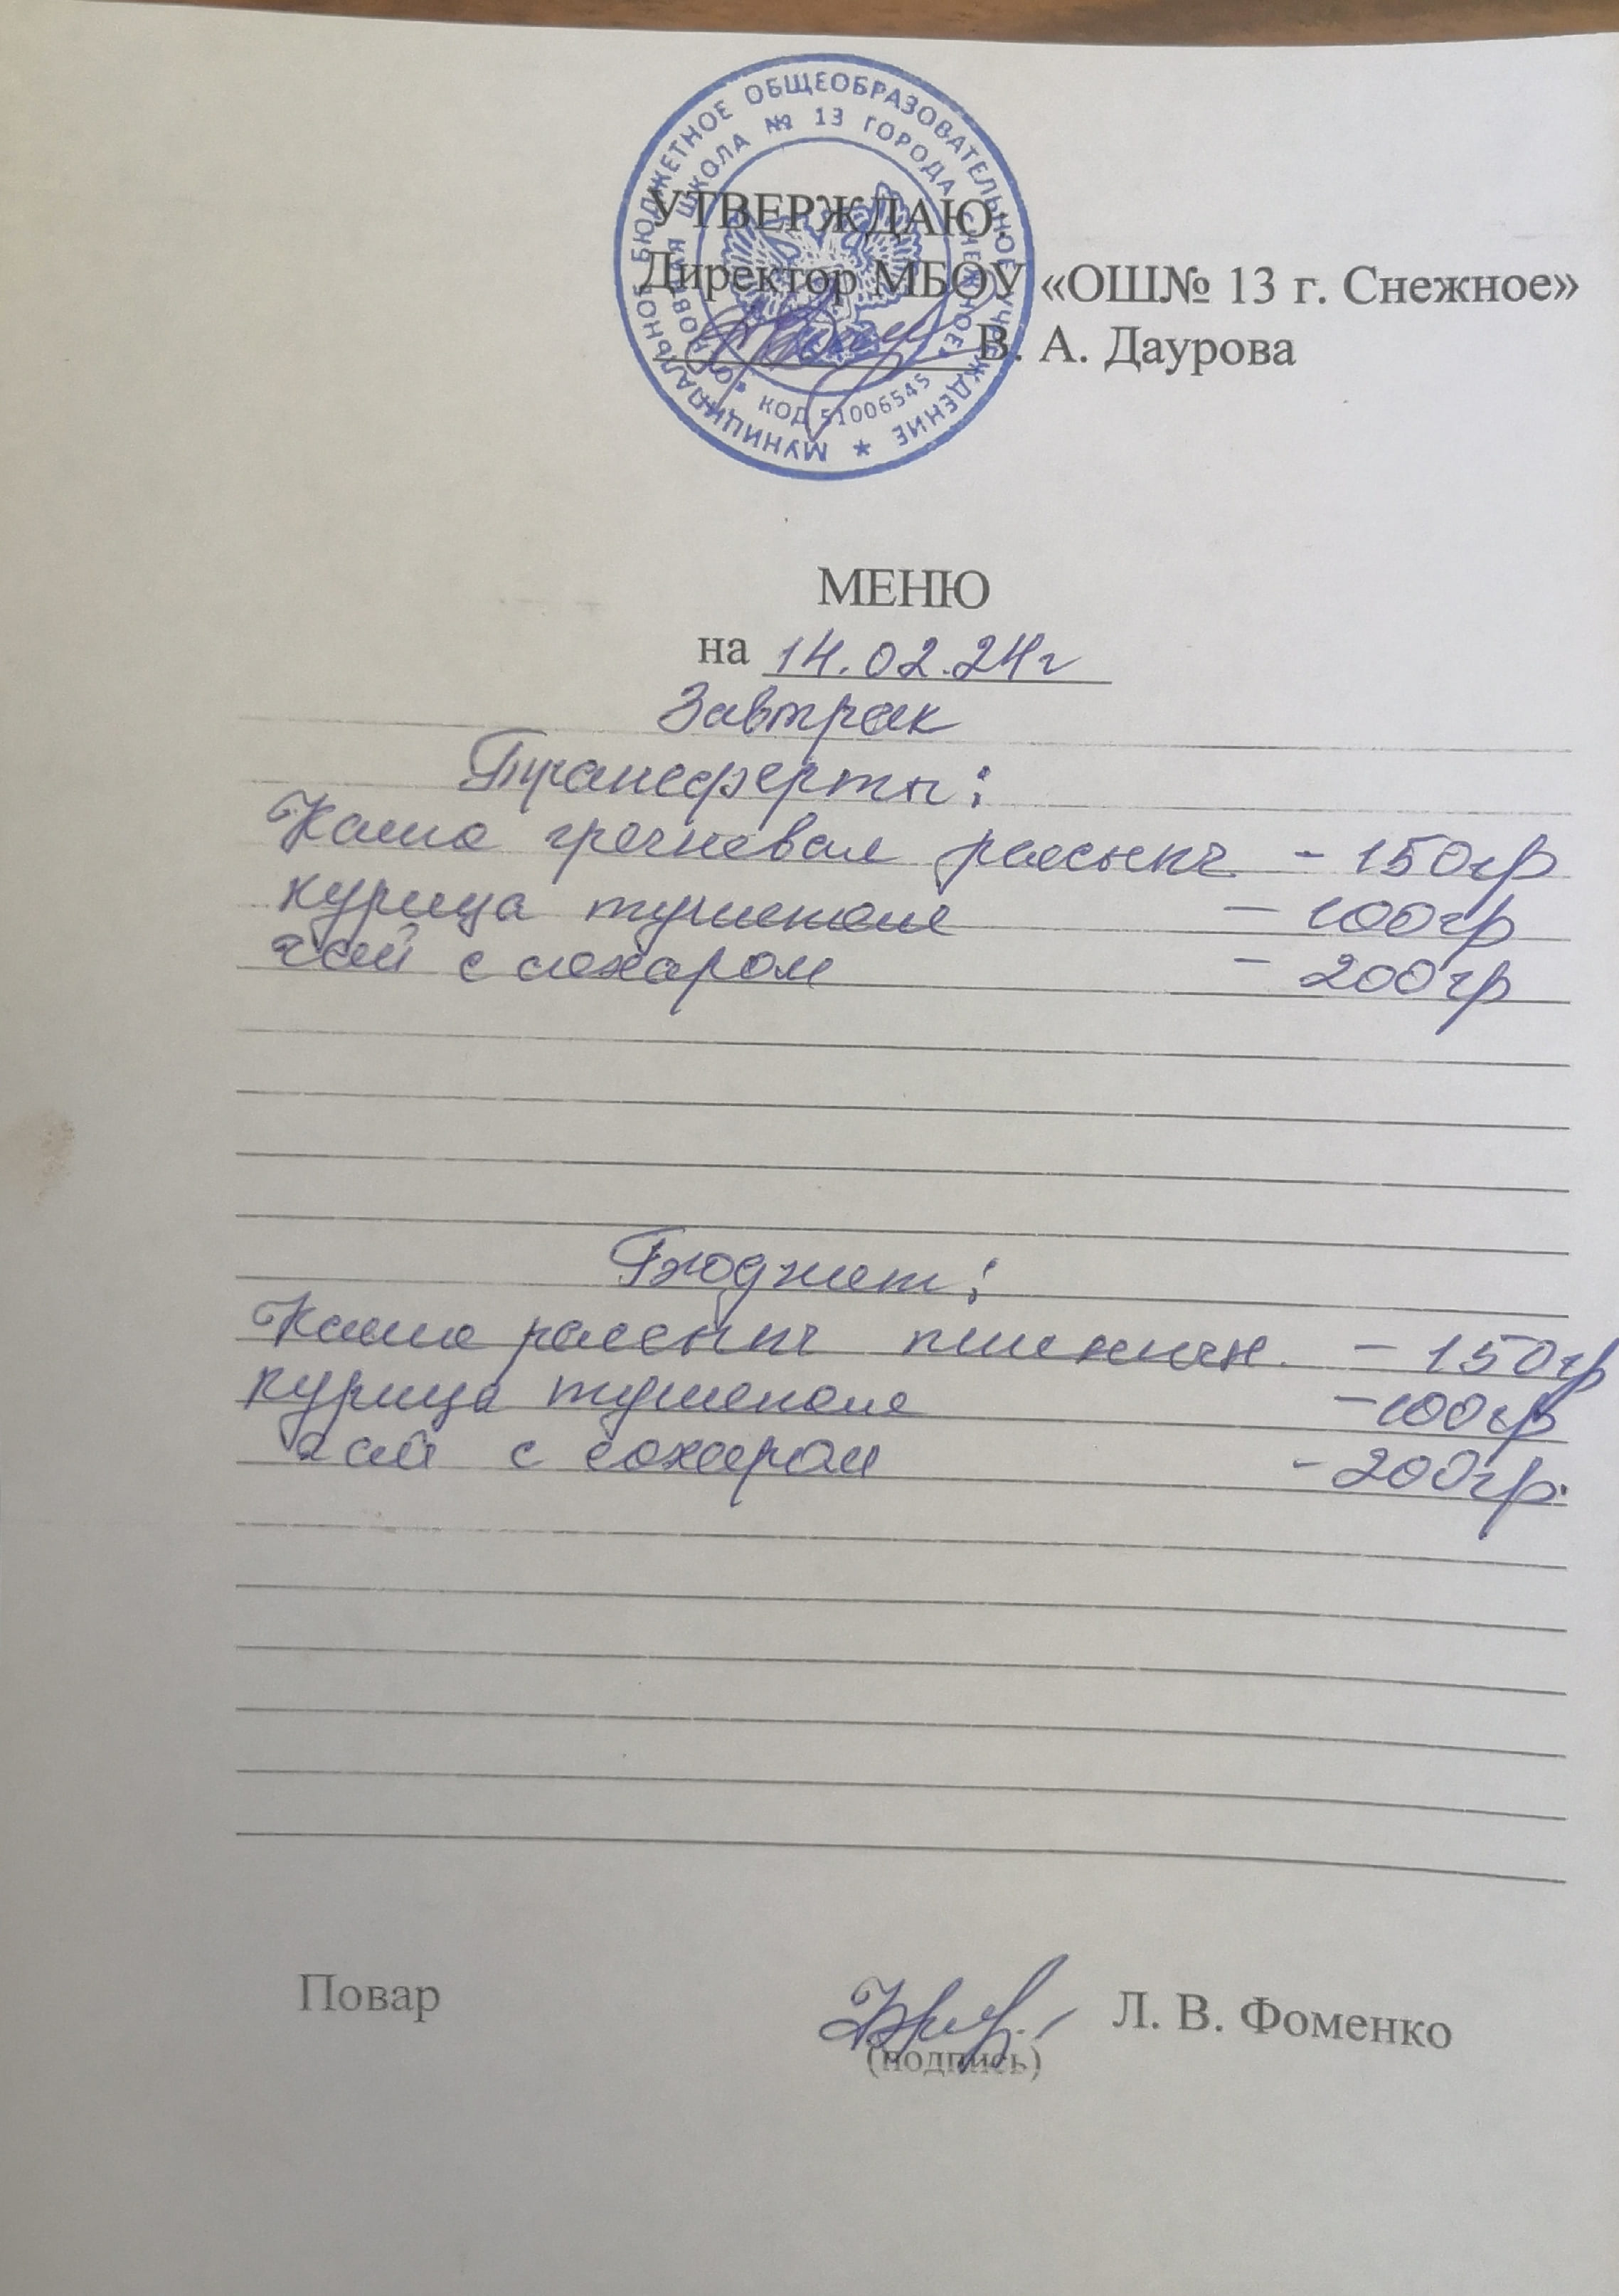 МУНИЦИПАЛЬНОЕ БЮДЖЕТНОЕ ОБЩЕОБРАЗОВАТЕЛЬНОЕ УЧРЕЖДЕНИЕ
ОСНОВНАЯ ШКОЛА № 13 ГОРОДА СНЕЖНОЕ
КОД 51006545
УТВЕРЖДАЮ:
Директор МБОУ «ОШ№ 13 г. Снежное»
В. А. Даурова
МЕНЮ
на 14.02.24г
Завтрак
Трансферты:
Каша гречневая рассыпч - 150гр
курица тушеная - 100гр
чай с сахаром - 200гр
Бюджет:
Каша рассыпч пшеничн. - 150гр
курица тушеная - 100гр
чай с сахаром - 200гр.
Повар Л. В. Фоменко
(подпись)